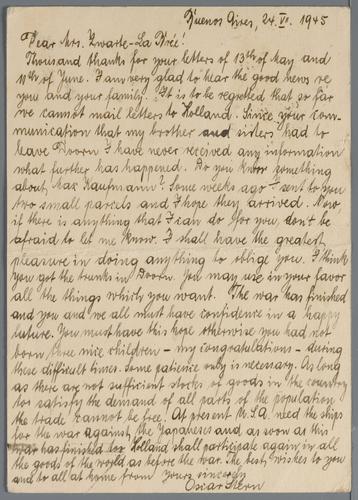 Buenos Aires, 24. VI. 1945
Dear Mrs. Kwarte-La Prée!
Thousand thanks for your letters of 13th of May and
11th of June. I am very glad to hear the good news re
you and your family. It is to be regretted that so far
we cannot mail letters to Holland. Since your com-
munication that my brother and sisters had to
leave Doorn I have never received any information
what further has happened. Do you know something
about Max Kaufmann? Some weeks ago I sent to you
two small parcels and I hope they arrived. Now
if there is anything that I can do for you, don't be
afraid to let me know. I shall have the greatest
pleasure in doing anything to oblige you. I think
you got the trunks in Doorn. You may use in your favor
all the things which you want. The war has finished
and you and we all must have confidence in a happy
future. You must have this hope otherwise you had not
born three nice children - my congratulations - during
these difficult times. Some patience only is necessary. As long
as there are not sufficient stocks of goods in the country
tos satisfy the demand of all parts of the population
the trade cannot be free. At present U.S.A. need the ships
for the war against the Japaneses and as soon as this
war has finished too Holland shall participate again in all
the goods of the world as before the war. The best wishes to you
and to all at home from Yours sincerely
Oscar Stern